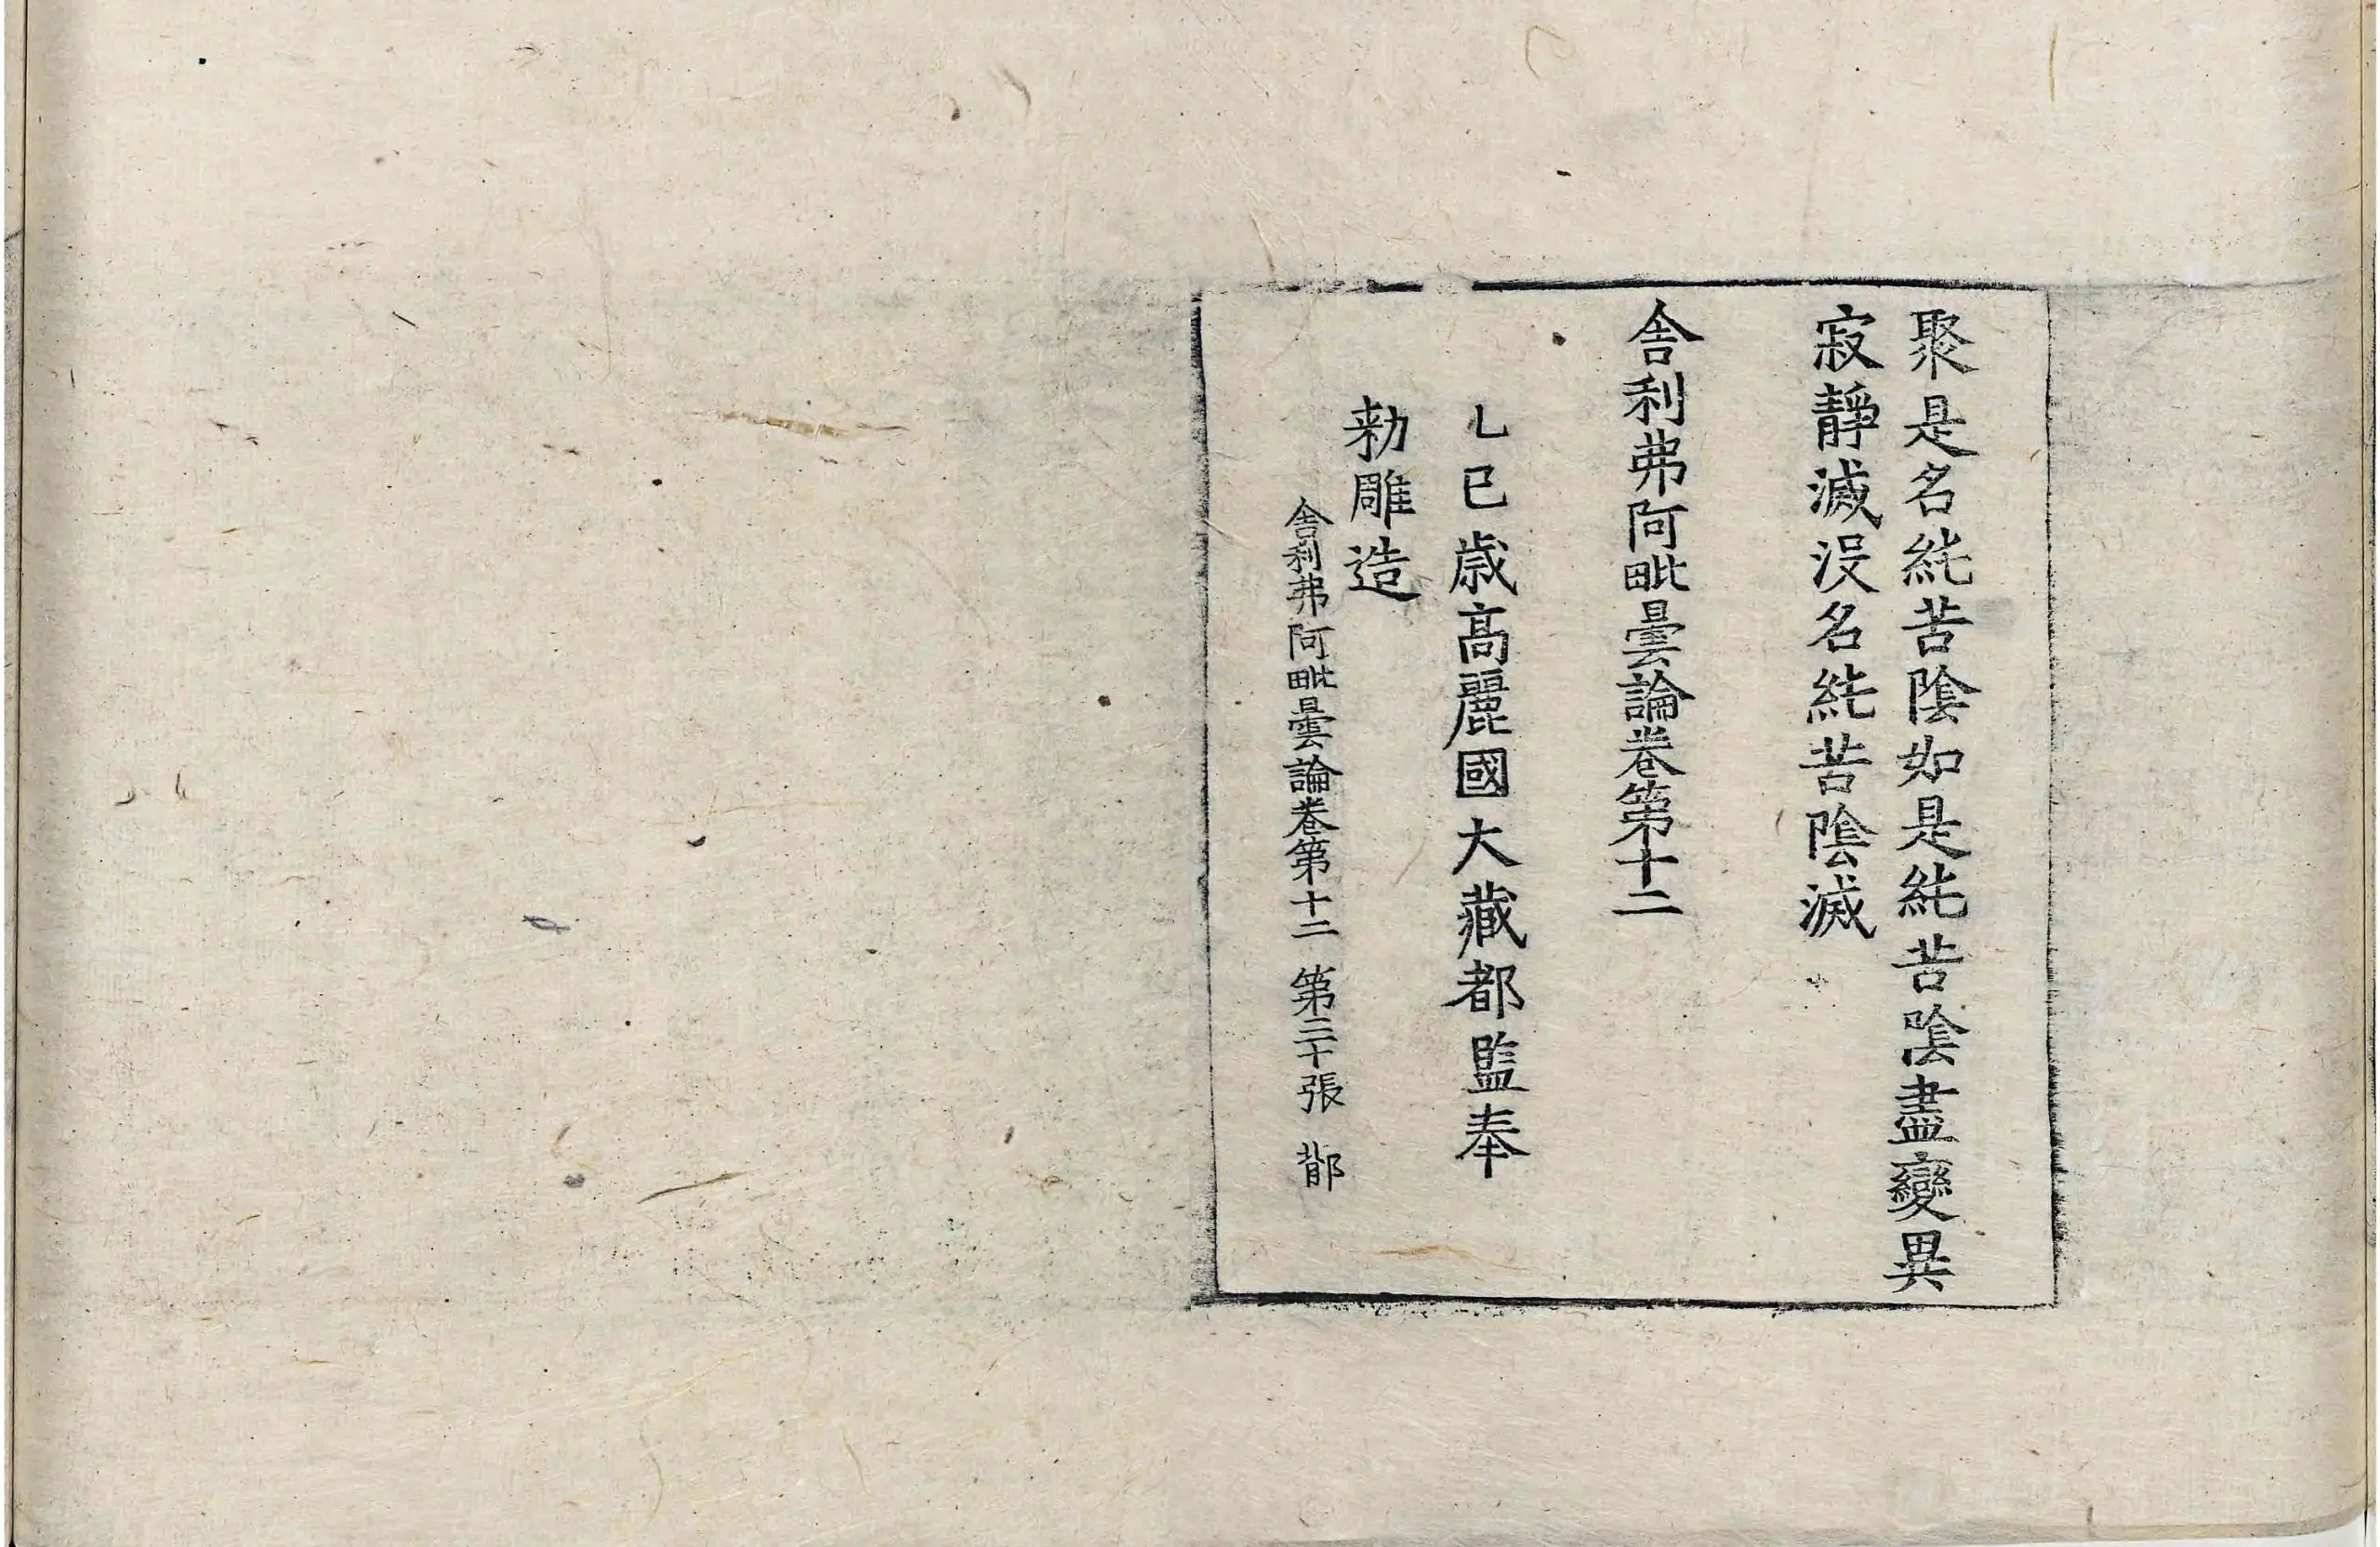 聚是名紽苦陰如是紽苦陰盡變異
寂靜滅没名紽苦陰滅
舍利弗阿毗曇論卷第十二
乙巳歳高麗國大藏都監奉
勑雕造
舍利弗阿毗曇論卷第十二 第三十張